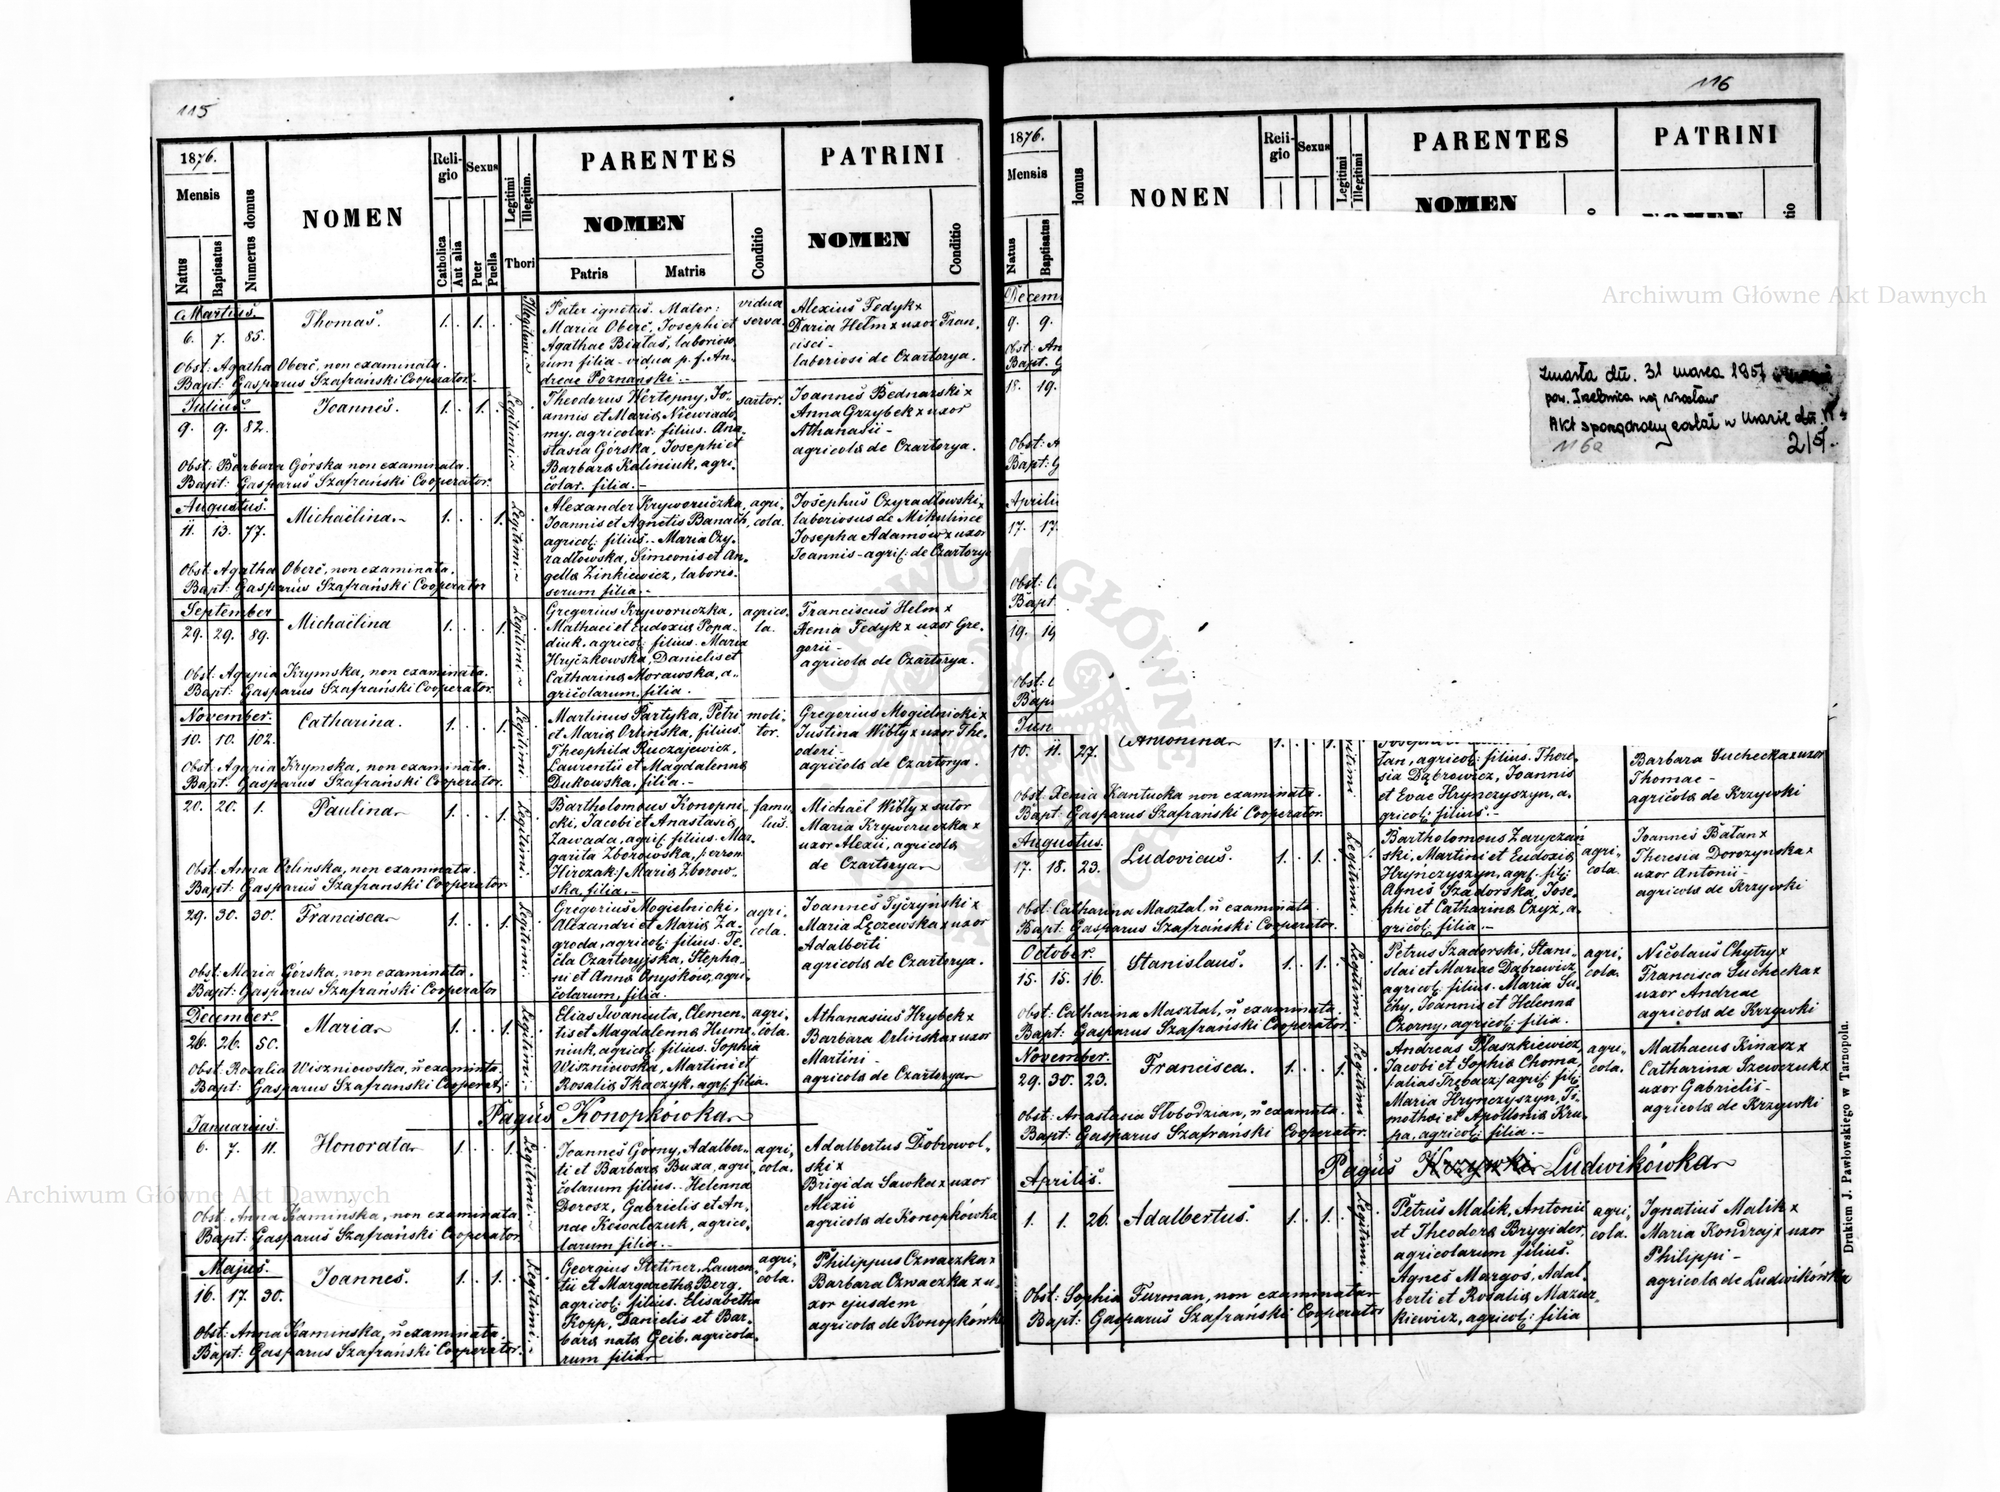 115
1876.
Mensis
Natus
Baptisatus
Numerus domus
NOMEN
Religio
Catholica
Aut alia
Sexus
Puer
Puella
Legitimi
Illegitim.
Thori
PARENTES
NOMEN
Patris
Matris
Conditio
PATRINI
NOMEN
Conditio
Martius.
6. 7. 85.
Thomas.
1. 1.
Illegitimi
Pater ignotus. Mater:
Maria Oberc, Josephi et
Agathae Białas, laborioso-
rum filia - vidua p. f. An-
dreae Poznanski.-
vidua
serva.
Alexius Fedyk x
Daria Helm x uxor Fran-
cisci-
laboriosi de Czartorya.
Obst: Agatha Oberc, non examinata.
Bapt: Gasparus Szafrański Cooperator.
Julius.
9. 9. 82.
Joannes.
1. 1.
Legitimi
Theodorus Wertepny, Jo-
annis et Maria Niewiado-
my. agricolar. filius. Ana-
stasia Górska, Josephi et
Barbara Kaliniuk, agri-
colar. filia.-
sartor.
Joannes Bednarski x
Anna Grzybek x uxor
Athanasii-
agricola de Czartorya.
Obst: Barbara Górska non examinata.
Bapt: Gasparus Szafrański Cooperator.
Augustus.
11. 13. 77.
Michaëlina.
1. 1.
Legitimi
Alexander Kryworuczka,
Joannis et Agnetis Banach
agricol: filius.. Maria Czy-
radłowska, Simeonis et An-
gella Zinkiewicz, laborio-
sorum filia.-
agri-
cola.
Josephus Czyradłowski x
laboriosus de Mikulince
Josepha Adamów x uxor
Joannis - agric: de Czartorya
Obst: Agatha Oberc, non examinata.
Bapt: Gasparus Szafrański Cooperator
September
29. 29. 89.
Michaëlina
1. 1.
Legitimi
Gregorius Kryworuczka,
Mathaei et Eudoxia Popa-
diuk, agricol: filius. Maria
Hryczkowska, Danielis et
Catharina Morawska, a-
gricolarum filia.
agrico-
la.
Franciscus Helm x
Xenia Fedyk x uxor Gre-
gorii-
agricola de Czartorya.
Obst: Agapia Krymska, non examinata.
Bapt: Gasparus Szafrański Cooperator.
November.
10. 10. 102.
Catharina.
1. 1.
Legitimi
Martinus Partyka, Petri
et Maria Orlinska, filius.
Theophila Ruczajewicz,
Laurentii et Magdalena
Dukowska, filia.-
moli-
tor.
Gregorius Mogielnicki x
Justina Wibły x uxor The-
odori-
agricola de Czartorya.
Obst: Agapia Krymska, non examinata.
Bapt: Gasparus Szafrański Cooperator.
20. 20. 1.
Paulina
1. 1.
Legitimi
Bartholomeus Konopni-
cki, Jacobi et Anastasia
Zawada, agric: filius. Mar-
garita Zborowska,
ska, filia.-
famu-
lus.
Michaël Wibły x sutor
Maria Kryworuczka x
uxor Alexii, agricola
de Czartorya
Obst: Anna Orlinska, non examinata.
Bapt: Gasparus Szafranski Cooperator
29. 30. 30.
Francisca
1. 1.
Legitimi
Gregorius Mogielnicki,
Alexandri et Maria Za-
groda, agricol: filius. Te-
cla Czartoryjska, Stepha-
ni et Anna Onysków, agri-
colarum, filia.
agri-
cola.
Joannes Tyczyński x
Maria Łęczewska x uxor
Adalberti
agricola de Czartorya.
Obst: Maria Górska, non examinata.
Bapt: Gasparus Szafrański Cooperator
December.
26. 26. 50.
Maria
1. 1.
Legitimi
Elias Iwanciuta, Clemen-
tis et Magdalenna Hume-
niuk, agricol: filius. Sophia
Wiszniowska, Martini et
Rosalia Tkaczyk, agric: filia.
agri-
cola.
Athanasius Hrybek x
Barbara Orlinska x uxor
Martini -
agricola de Czartorya
Obst: Rosalia Wiszniowska, ñ examinata.
Bapt: Gasparus Szafranski Cooperat.
Pagus Konopkówka
Januarius.
6. 7. 11.
Honorata
1. 1.
Legitimi
Joannes Górny, Adalber-
ti et Barbara Buxa, agri-
colarum filius.. Helenna
Dorosz, Gabrielis et An-
nae Kowalczuk, agrico-
larum filia.-
agri-
cola.
Adalbertus Dobrowol-
ski x
Brigida Sawka x uxor
Alexii
agricola de Konopkówka
Obst: Anna Kaminska, non examinata
Bapt: Gasparus Szafrański Cooperator.
Majus.
16. 17. 30.
Joannes.
1. 1.
Legitimi
Georgius Stetiner, Lauren-
tii et Margaretha Berg.
agricol: filius. Elisabetha
Kopp, Danielis et Bar-
bara nata Geib, agricola-
rum filia
agri-
cola.
Philippus Czwaczka x
Barbara Czwaczka x u-
xor ejusdem
agricola de Konopkówka
Obst: Anna Kaminska, ñ examinata.
Bapt: Gasparus Szafrański Cooperator.
116
1876.
Mensis
Natus
Baptisatus
domus
NONEN
Religio
Sexus
Legitimi
Illegitimi
PARENTES
NOMEN
PATRINI
NOMEN
Decem
9. 9.
Obst: An
Bapt: G
18. 19.
Obst: A
Bapt: G
Aprili
17. 17.
Obst: C
Bapt:
19. 19
Obst: C
Bapt:
Jun
zmarła dn. 31 marca 1957
pow. Trzebnica woj. Wrocław
Akt sporządzony został w
116a
10. 11. 27.
Antonina
1. 1.
tan, agricol: filius. There-
sia Dąbrowicz, Joannis
et Evae Hrynczyszyn, a-
gricol: filius.-
Barbara Suchecka x uxor
Thomae -
agricola de Krzywki
Obst: Xenia Kantucka non examinata.
Bapt: Gasparus Szafrański Cooperator.
Augustus.
17. 18. 23.
Ludovicus.
1. 1.
Legitimi
Bartholomeus Zaryczań-
ski, Martini et Eudoxia
Hrynczyszyn, agric. fil:
Agnes Szadorska, Jose-
phi et Catharina Czyż, a-
gricol: filia.-
agri-
cola.
Joannes Bałan x
Theresia Dorozynska x
uxor Antonii-
agricola de Krzywki
Obst: Catharina Masztal, ñ examinata.
Bapt: Gasparus Szafrański Cooperator.
October.
15. 15. 16.
Stanislaus.
1. 1.
Legitimi
Petrus Szadorski, Stani-
slai et Mariae Dąbrowicz
agricol: filius. Maria Su-
chy, Joannis et Helenna
Czorny, agricol: filia.
agri-
cola.
Nicolaus Chytry x
Francisca Suchecka x
uxor Andreae
agricola de Krzywki
Obst: Catharina Masztal, ñ examinata.
Bapt: Gasparus Szafrański Cooperator.
November.
29. 30. 23.
Francisca.
1. 1.
Legitimi
Andreas Płaszkiewicz
Jacobi et Sophia Choma,
/alias Trębacz/ agric: fil:
Maria Hrynczyszyn, Ti-
mothei et Apollonia Kru-
pa, agricol: filia.-
agri-
cola.
Mathaeus Kinasz x
Catharina Szewczuk x
uxor Gabrielis -
agricola de Krzywki
Obst: Anastasia Słobodzian, ñ examinata.
Bapt: Gasparus Szafrański Cooperator.
Pagus Krzywki Ludwikówka
Aprilis.
1. 1. 26.
Adalbertus.
1. 1.
Legitimi
Petrus Malik, Antonii
et Theodora Brygider,
agricolarum filius.
Agnes Margoś, Adal-
berti et Rosalia Mazur-
kiewicz, agricol: filia
agri-
cola.
Ignatius Malik x
Maria Kondraj x uxor
Philippi -
agricola de Ludwikówka
Obst: Sophia Furman, non examinata
Bapt: Gasparus Szafrański Cooperator
Drukiem J. Pawłowskiego w Tarnopolu.
Archiwum Główne Akt Dawnych
Archiwum Główne Akt Dawnych